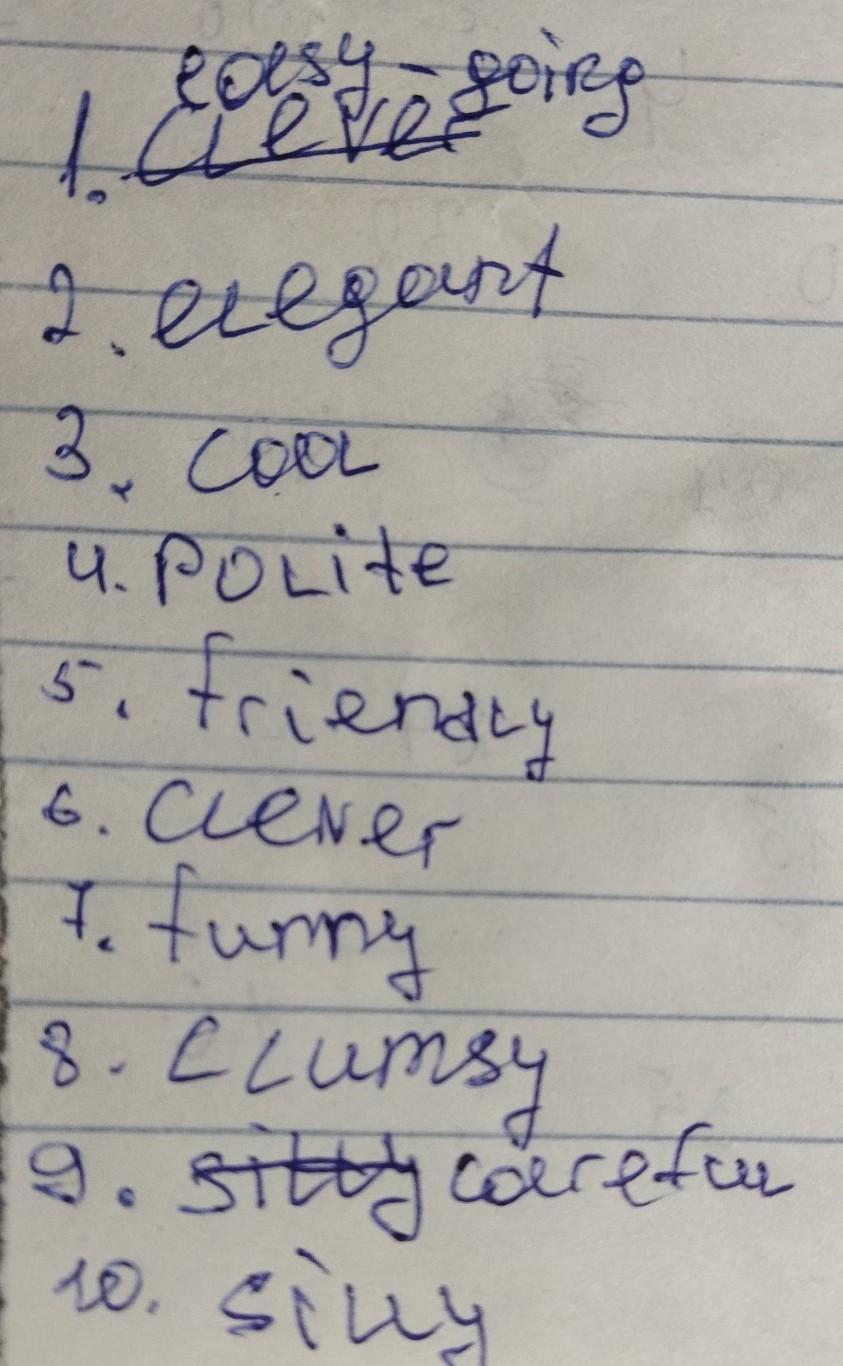 easy-going
1. clever
2. elegant
3. cool
4. Polite
5. friendly
6. clever
7. funny
8. clumsy
9. silly careful
10. silly